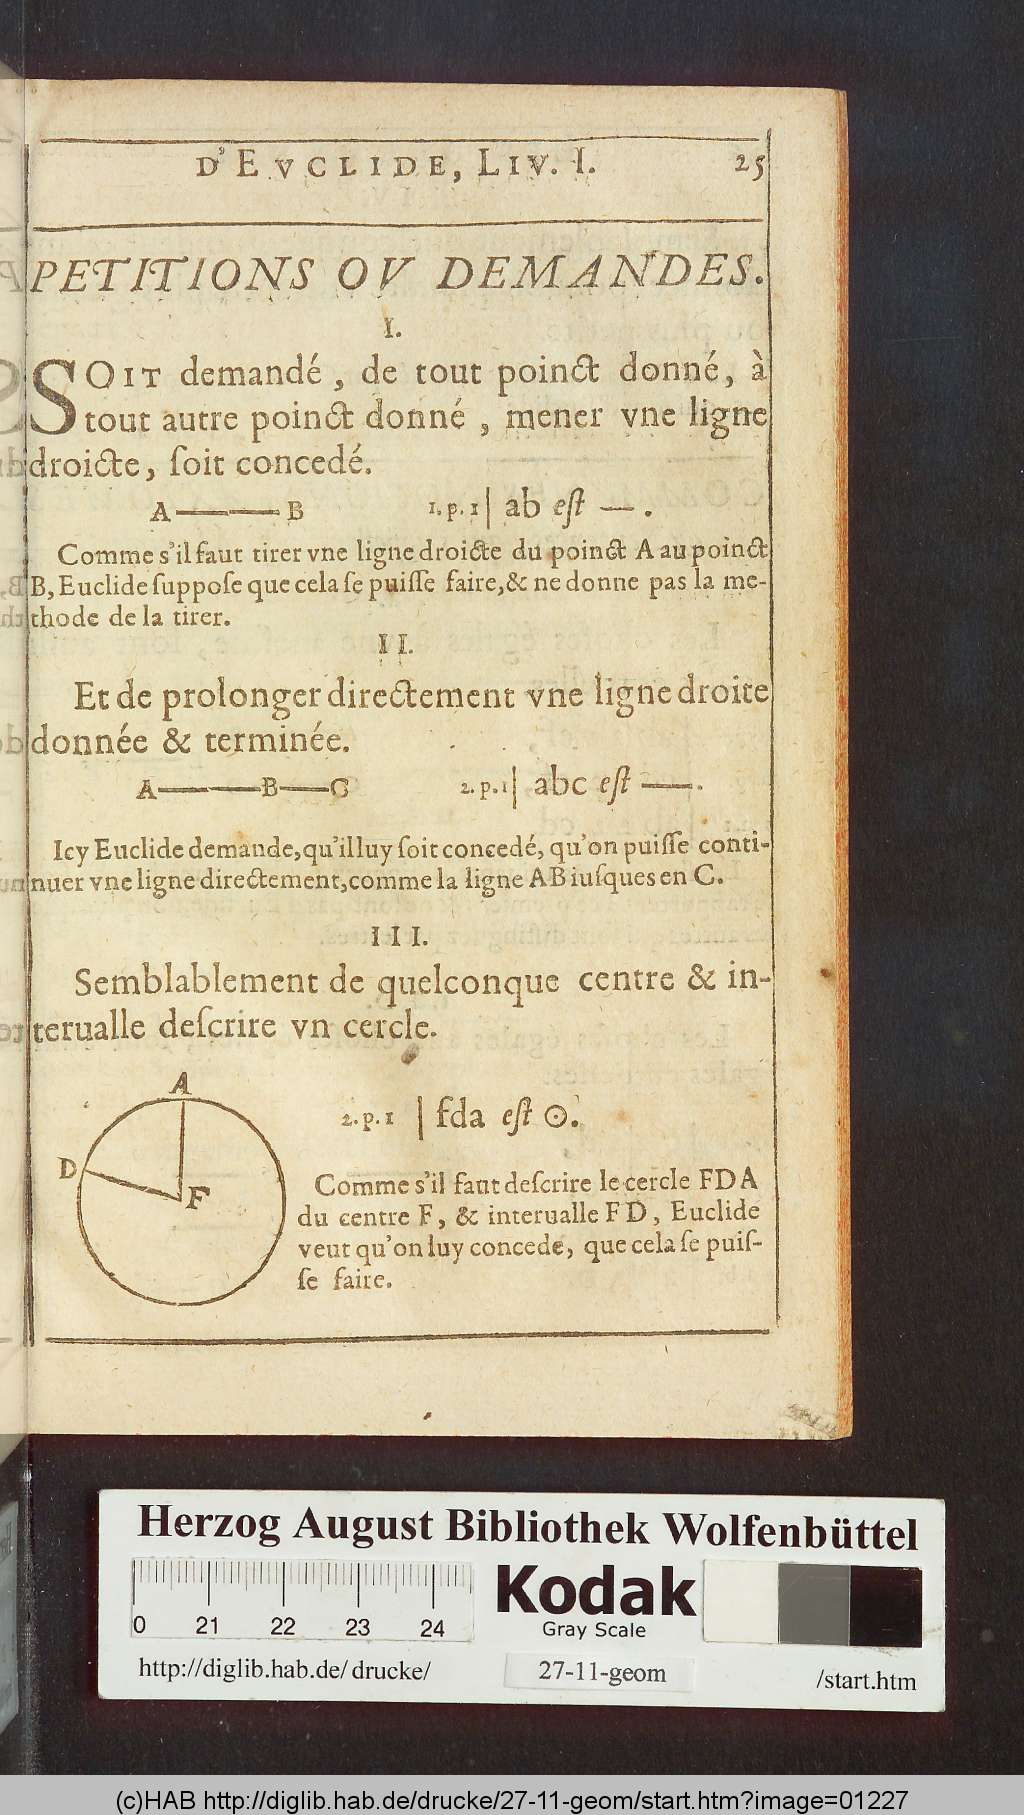 D'EVCLIDE, LIV. I. 25
PETITIONS OV DEMANDES.
I.
SOIT demandé, de tout poinct donné, à
tout autre poinct donné, mener vne ligne
droicte, ſoit concedé.
A B 1. p. 1 | ab eſt —.
Comme s'il faut tirer vne ligne droicte du poinct A au poinct
B, Euclide ſuppoſe que cela ſe puiſſe faire, & ne donne pas la me-
thode de la tirer.
II.
Et de prolonger directement vne ligne droite
donnée & terminée.
A B C 2. p. 1 | abc eſt —.
Icy Euclide demande, qu'il luy ſoit concedé, qu'on puiſſe conti-
nuer vne ligne directement, comme la ligne AB iuſques en C.
III.
Semblablement de quelconque centre & in-
terualle deſcrire vn cercle.
A
2. p. 1 | fda eſt ⊙.
D
F
Comme s'il faut deſcrire le cercle FDA
du centre F, & interualle FD, Euclide
veut qu'on luy concede, que cela ſe puiſ-
ſe faire.
Herzog August Bibliothek Wolfenbüttel
Kodak
Gray Scale
0 21 22 23 24
http://diglib.hab.de/drucke/ 27-11-geom /start.htm
(c)HAB http://diglib.hab.de/drucke/27-11-geom/start.htm?image=01227